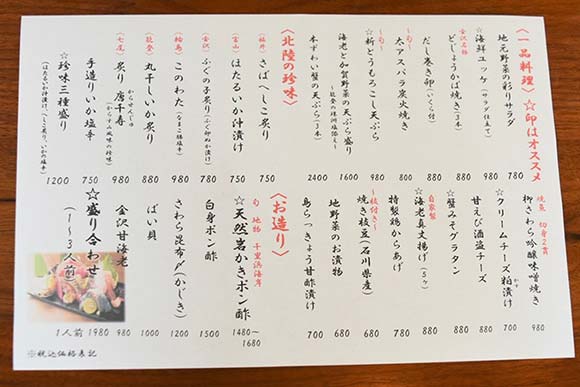 〈一品料理〉☆印はオススメ
地元野菜の彩りサラダ 780
☆海鮮ユッケ(サラダ仕立て) 980
金沢名物
どじょうかば焼き(3本) 880
だし巻き卵(いくら付) 880
〜旬〜
太アスパラ炭火焼き 800
〜旬〜
☆新とうもろこし天ぷら 980
海老と加賀野菜の天ぷら盛り 1600
〜能登の珠洲塩添え〜
本ずわい蟹の天ぷら(3本) 2400
〈北陸の珍味〉
(福井) さばへしこ炙り 780
(富山) ほたるいか沖漬け 750
(金沢) ふぐの子炙り(ふぐ卵ぬか漬け) 780
(輪島) このわた(なまこ腸塩辛) 980
(能登) 丸干しいか炙り 880
(七尾) 炙り唐千寿(からすみ風味の珍味) 980
からせんじゅ
手造りいか塩辛 750
☆珍味三種盛り 1200
(ほたるいか沖漬け、へしこ炙り、いかの塩辛)
焼魚 切身2貫
柳さわら吟醸味噌焼き 980
☆クリームチーズ粕漬け 700
かす
甘えび酒盗チーズ 880
☆蟹みそグラタン 880
自家製
☆海老真丈揚げ(3ヶ) 880
特製鶏からあげ 780
〜枝付き〜
焼き枝豆(石川県産) 680
地野菜のお漬物 680
島らっきょう甘酢漬け 700
〈お造り〉
旬 地物 千里浜海岸
☆天然岩かきポン酢 1480〜1680
白身ポン酢 1500
さわら昆布〆(かじき) 1200
ばい貝 1000
金沢甘海老 980
☆盛り合わせ 1人前 1980
(1〜3人前)
※税込価格表記